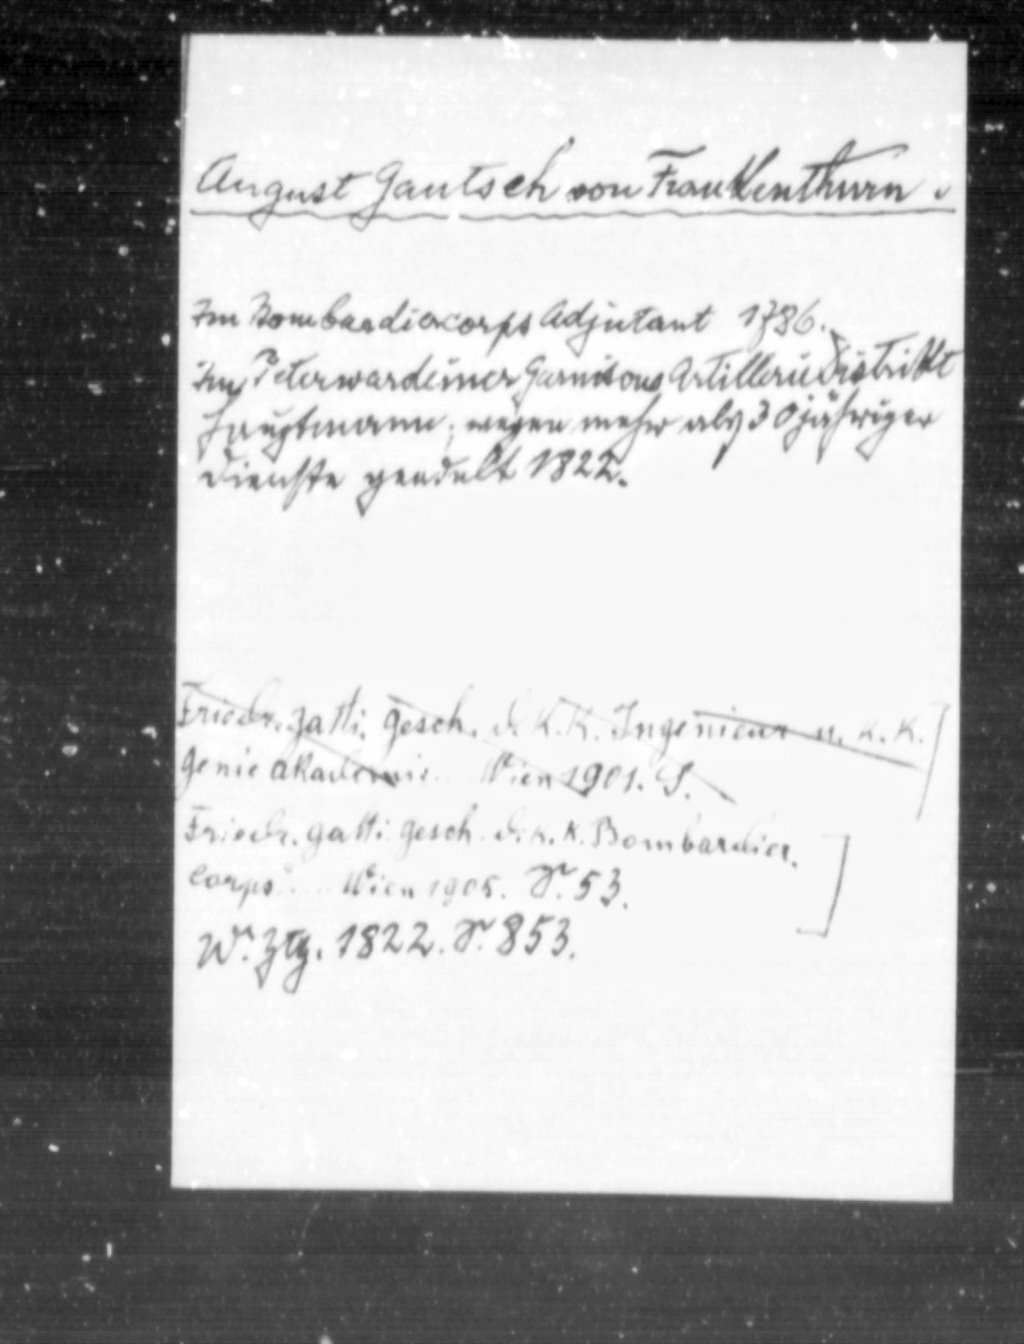 August Gautsch von Frankenthurn.
Im Bombardiercorps Adjutant 1786.
Im Peterwardeiner Garnisons Artillerie Distrikt
Hauptmann; wegen mehr als 30jähriger
Dienste geadelt 1822.
Friedr. Gatti. Gesch. d. K. K. Ingenieur u. K. K.
Genie Akademie. Wien 1901. S.
Friedr. Gatti. Gesch. d. K. K. Bombardier.
Corps. Wien 1905. S. 53.
Wr. Ztg. 1822. S. 853.